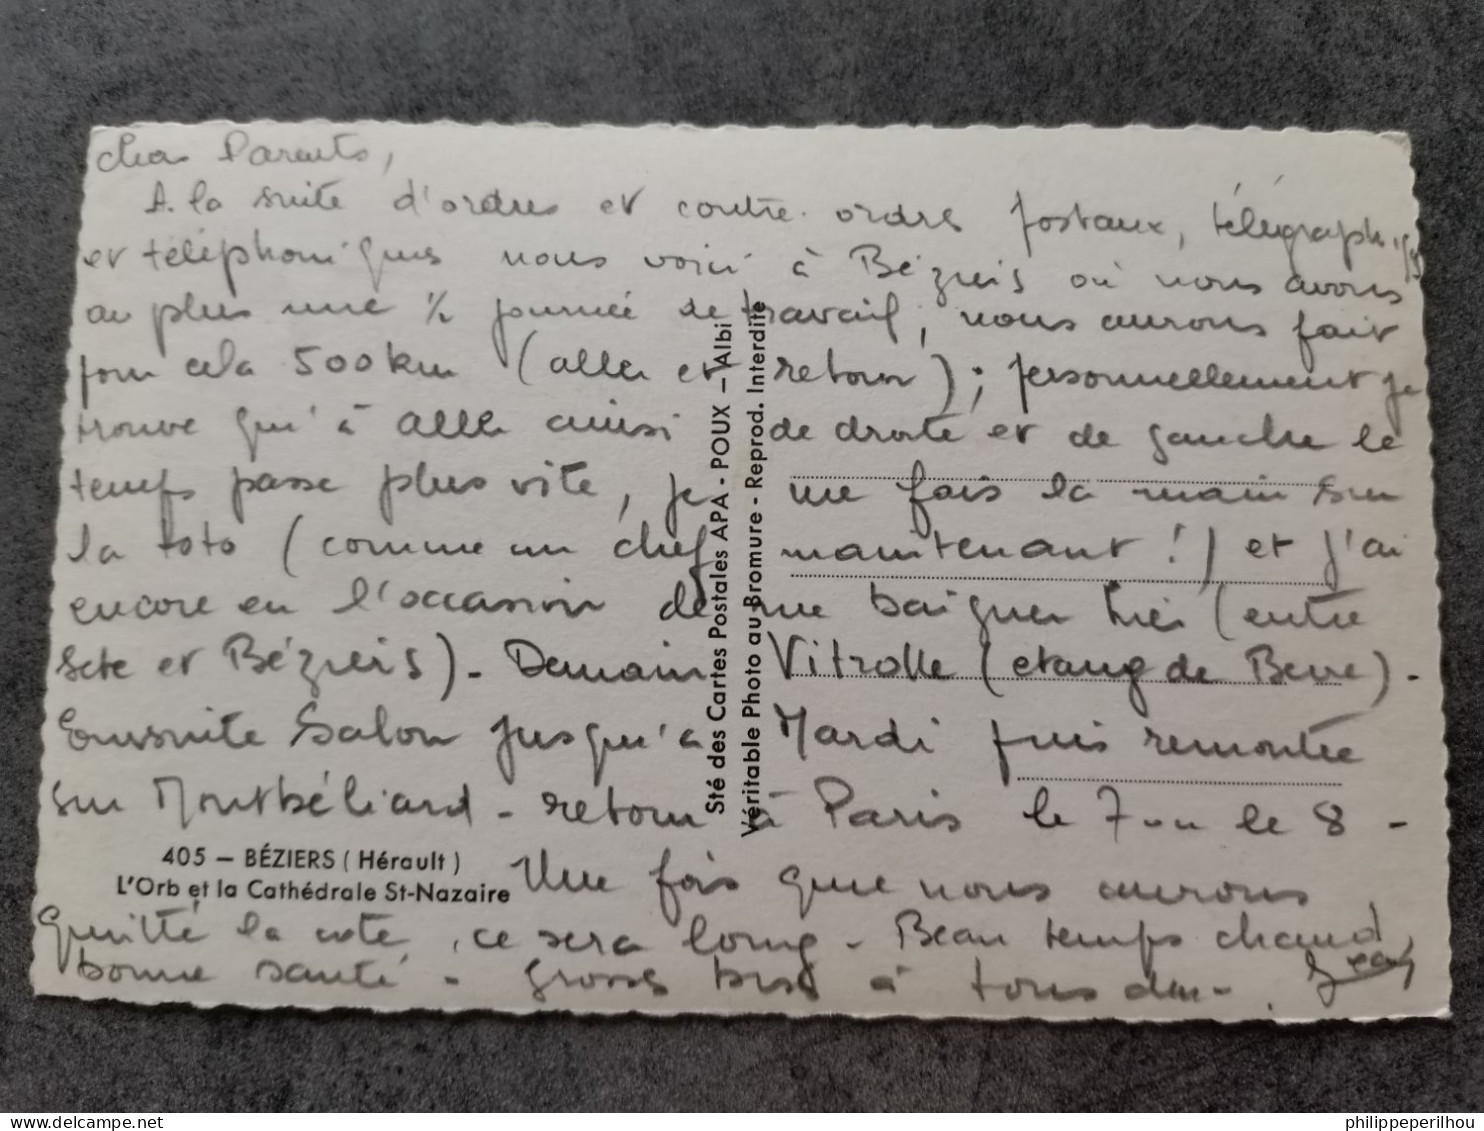 Chers Parents,
A la suite d'ordres et contre-ordres postaux, télégraphiques
et téléphoniques nous voici à Béziers où nous avons
au plus une ½ journée de travail, nous aurons fait
pour cela 500 km (aller et retour); personnellement je
trouve qu'à aller ainsi de droite et de gauche le
temps passe plus vite, je me fais la main sur
la toto (comme un chef maintenant !) et j'ai
encore eu l'occasion de me baigner hier (entre
Sete et Béziers) - Demain Vitrolle (etang de Berre) -
Ensuite Salon jusqu'à Mardi puis remontée
sur Montbéliard - retour à Paris le 7 ou le 8 -
Une fois que nous aurons
quitté la cote, ce sera long - Beau temps chaud,
bonne santé - Grosses bises à tous deux - Jean
405 — BÉZIERS (Hérault)
L'Orb et la Cathédrale St-Nazaire
Sté des Cartes Postales APA - POUX — Albi
Véritable Photo au Bromure - Reprod. Interdite
delcampe.net
philippeperilhou